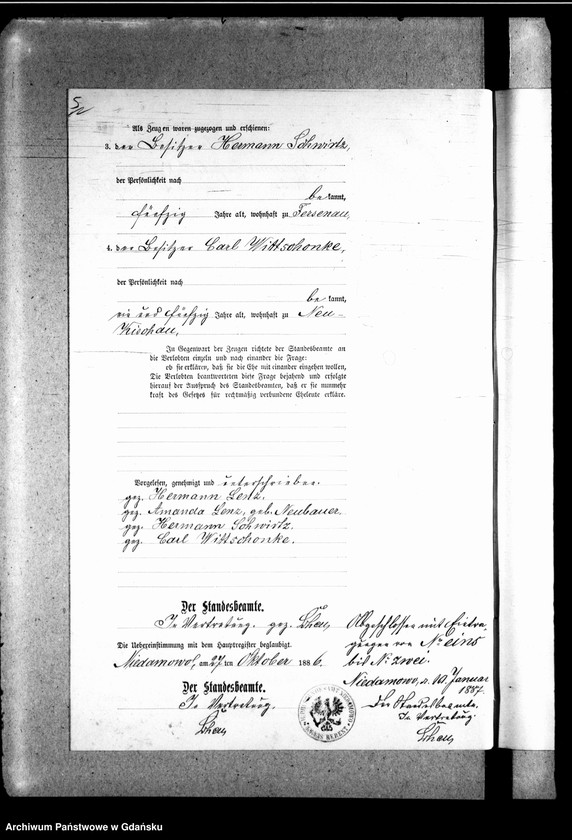 Als Zeugen waren zugezogen und erschienen:
3. der Besitzer Hermann Schwirtz,
der Persönlichkeit nach
be kannt,
fünfzig Jahre alt, wohnhaft zu Fersenau,
4. der Besitzer Carl Wittschonke,
der Persönlichkeit nach
be kannt,
vier und fünfzig Jahre alt, wohnhaft zu Neu-
Kischau,
In Gegenwart der Zeugen richtete der Standesbeamte an
die Verlobten einzeln und nach einander die Frage:
ob sie erklären, daß sie die Ehe mit einander eingehen wollen,
Die Verlobten beantworteten diese Frage bejahend und erfolgte
hierauf der Ausspruch des Standesbeamten, daß er sie nunmehr
kraft des Gesetzes für rechtmäßig verbundene Eheleute erkläre.
Vorgelesen, genehmigt und unterschrieben.
gez. Hermann Lenz.
gez. Amanda Lenz, geb. Neubauer.
gez. Hermann Schwirtz.
gez. Carl Wittschonke.
Der Standesbeamte.
In Vertretung. gez.
Die Uebereinstimmung mit dem Hauptregister beglaubigt.
Niedamowo, am 27 ten Oktober 1886.
Der Standesbeamte.
In Vertretung.
Abgeschlossen mit Eintra-
gungen von No eins
bis No zwei.
Niedamowo, d. 10. Januar
1887.
Der Standesbeamte.
In Vertretung.
Archiwum Państwowe w Gdańsku